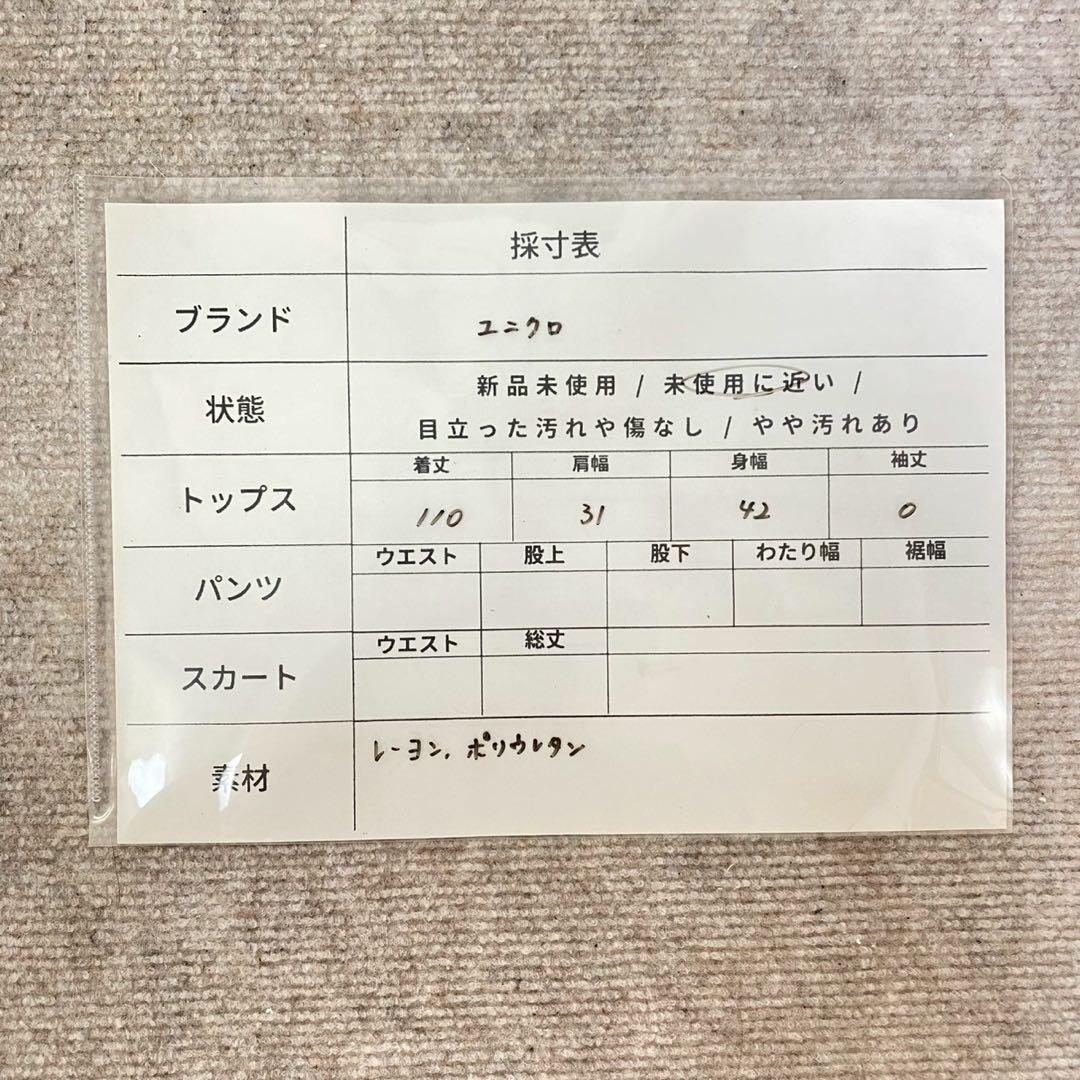 採寸表
ブランド ユニクロ
状態 新品未使用 / 未使用に近い /
目立った汚れや傷なし / やや汚れあり
トップス 着丈 肩幅 身幅 袖丈
110 31 42 0
パンツ ウエスト 股上 股下 わたり幅 裾幅
スカート ウエスト 総丈
素材 レーヨン、ポリウレタン